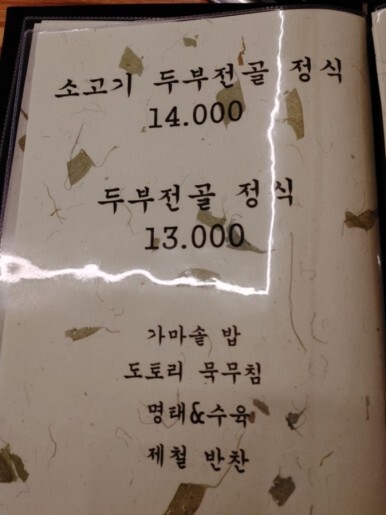 소고기 두부전골 정식
14.000
두부전골 정식
13.000
가마솥 밥
도토리 묵무침
명태&수육
제철 반찬